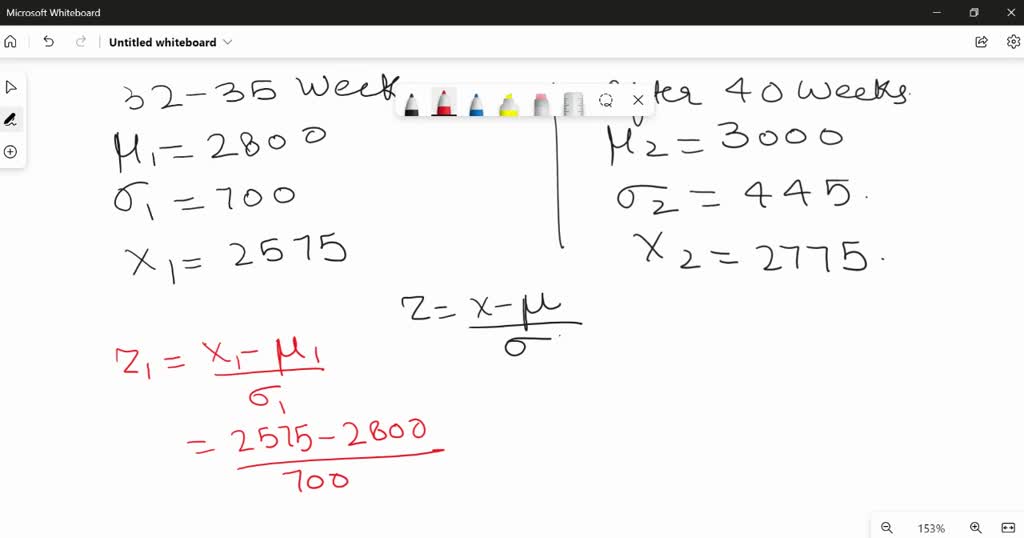 Microsoft Whiteboard
Untitled whiteboard
32-35 Week
μ1 = 2800
σ1 = 700
x1 = 2575
40 Weeks.
μ2 = 3000
σ2 = 445.
x2 = 2775.
z = x-μ
σ
z1 = x1-μ1
σ1
= 2575-2800
700
153%